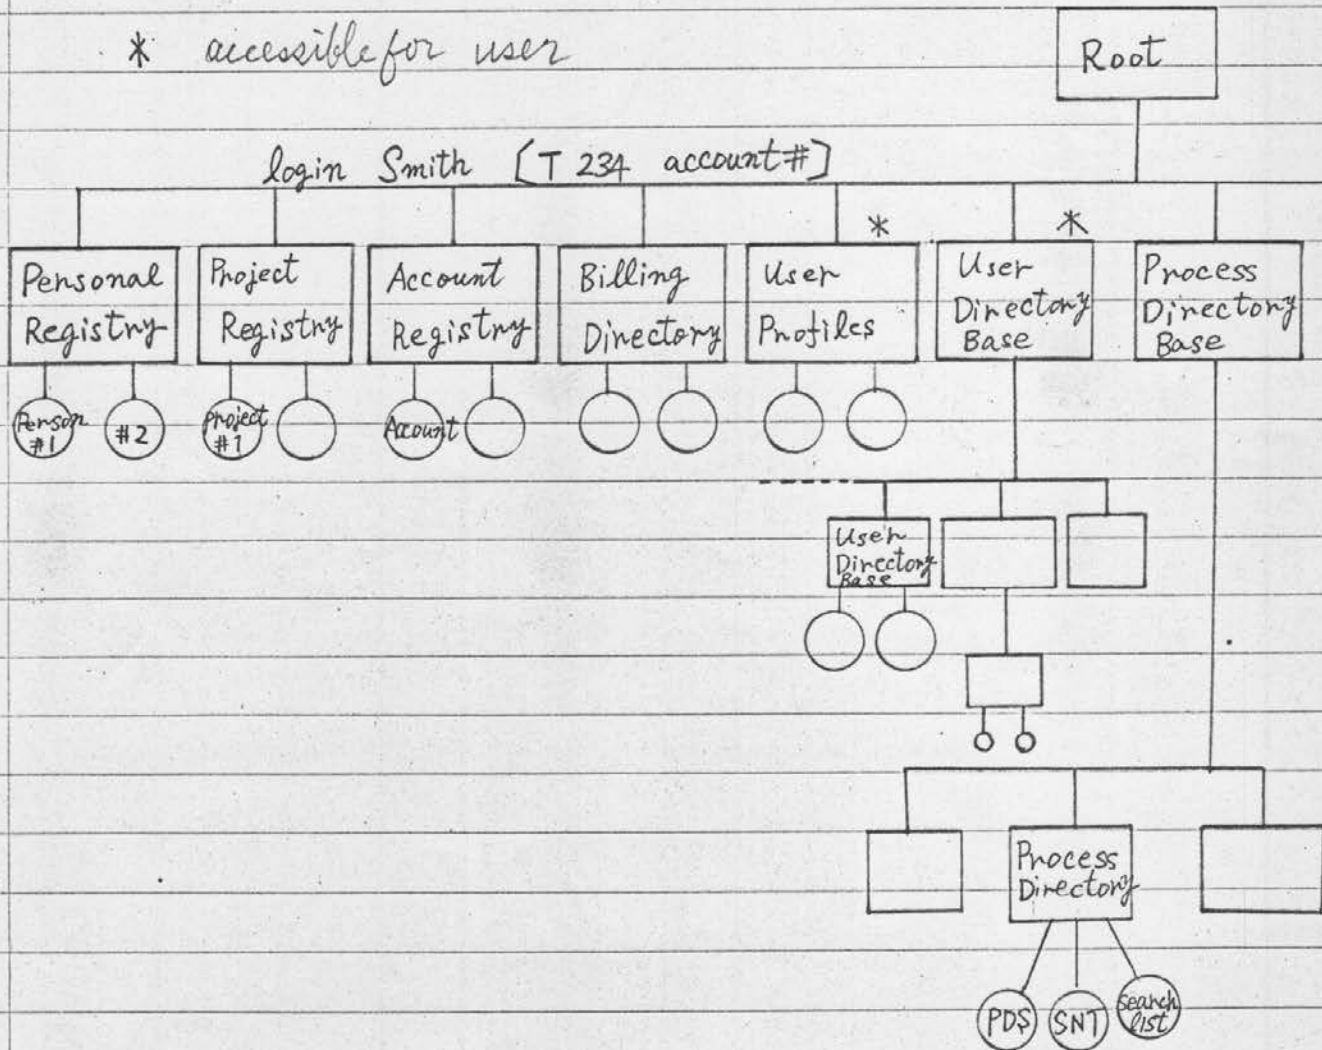 * accessible for user
Root
login Smith [T 234 account #]
*
*
Personal
Registry
Project
Registry
Account
Registry
Billing
Directory
User
Profiles
User
Directory
Base
Process
Directory
Base
Person
#1
#2
Project
#1
Account
User
Directory
Base
Process
Directory
PDS
SNT
search
list